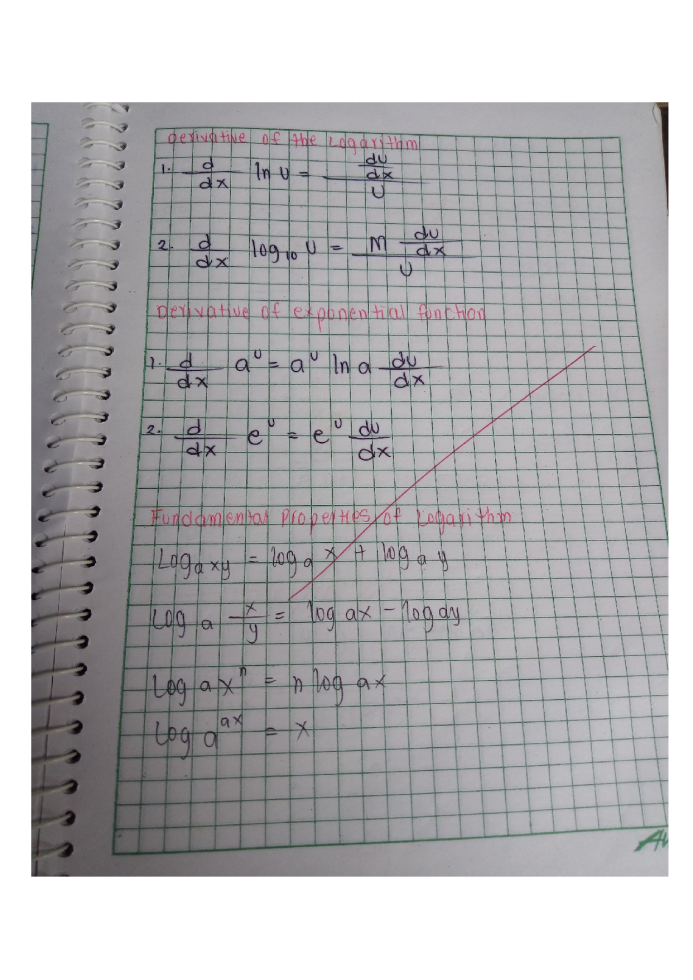 Derivative of the Logarithm
1. d/dx ln U = du/dx / U
2. d/dx log₁₀ U = M du/dx / U
Derivative of exponential function
1. d/dx aᵁ = aᵁ ln a du/dx
2. d/dx eᵁ = eᵁ du/dx
Fundamental Properties of Logarithm
Log a xy = log a x + log a y
Log a x/y = log ax - log ay
Log ax^n = n log ax
Log a^ax = x